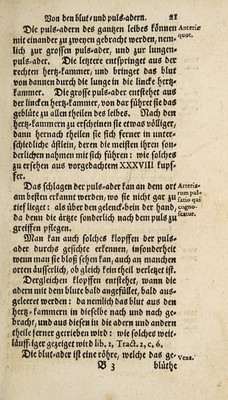 Von den blut- und puls-adern. 21
Die puls-adern des gantzen leibes können
mit einander zu zwey gebracht werden, nem-
lich zur grossen puls-ader, und zur lungen-
puls-ader. Die letztere entspringet aus der
rechten hertz-kammer, und bringet das blut
von dannen durch die lunge in die lincke hertz-
kammer. Die grosse puls-ader entstehet aus
der lincken hertz-kammer, von dar führet sie das
geblüte zu allen theilen des leibes. Nach den
hertz-kammern zu erscheinen sie etwas völliger,
dann hernach theilen sie sich ferner in unter-
schiedliche ästlein, deren die meisten ihren son-
derlichen nahmen mit sich führen: wie solches
zu ersehen aus vorgedachtem XXXVIII kupf-
fer.
Das schlagen der puls-ader kan an dem ort
am besten erkannt werden, wo sie nicht gar zu
tief lieget: als über den gelenck-bein der hand,
da denn die ärtzte sonderlich nach dem puls zu
greiffen pflegen.
Man kan auch solches klopffen der puls-
ader durchs gesichte erkennen, insonderheit
wenn man sie bloß sehen kan, auch an manchen
orten äusserlich, ob gleich kein theil verletzet ist.
Dergleichen klopffen entstehet, wann die
adern mit dem blute bald angefüllet, bald aus-
geleeret werden: da nemlich das blut aus den
hertz-kammern in dieselbe nach und nach ge-
bracht, und aus diesen in die adern und andern
theile ferner getrieben wird: wie solches weit-
läufftiger gezeiget wird lib. 2, Tract. 2, c. 6.
Die blut-ader ist eine röhre, welche das ge-
B 3 blüthe
Arteriæ
quot.
Arteria-
rum pul-
satio qui
cogno-
scatur.
Vena.